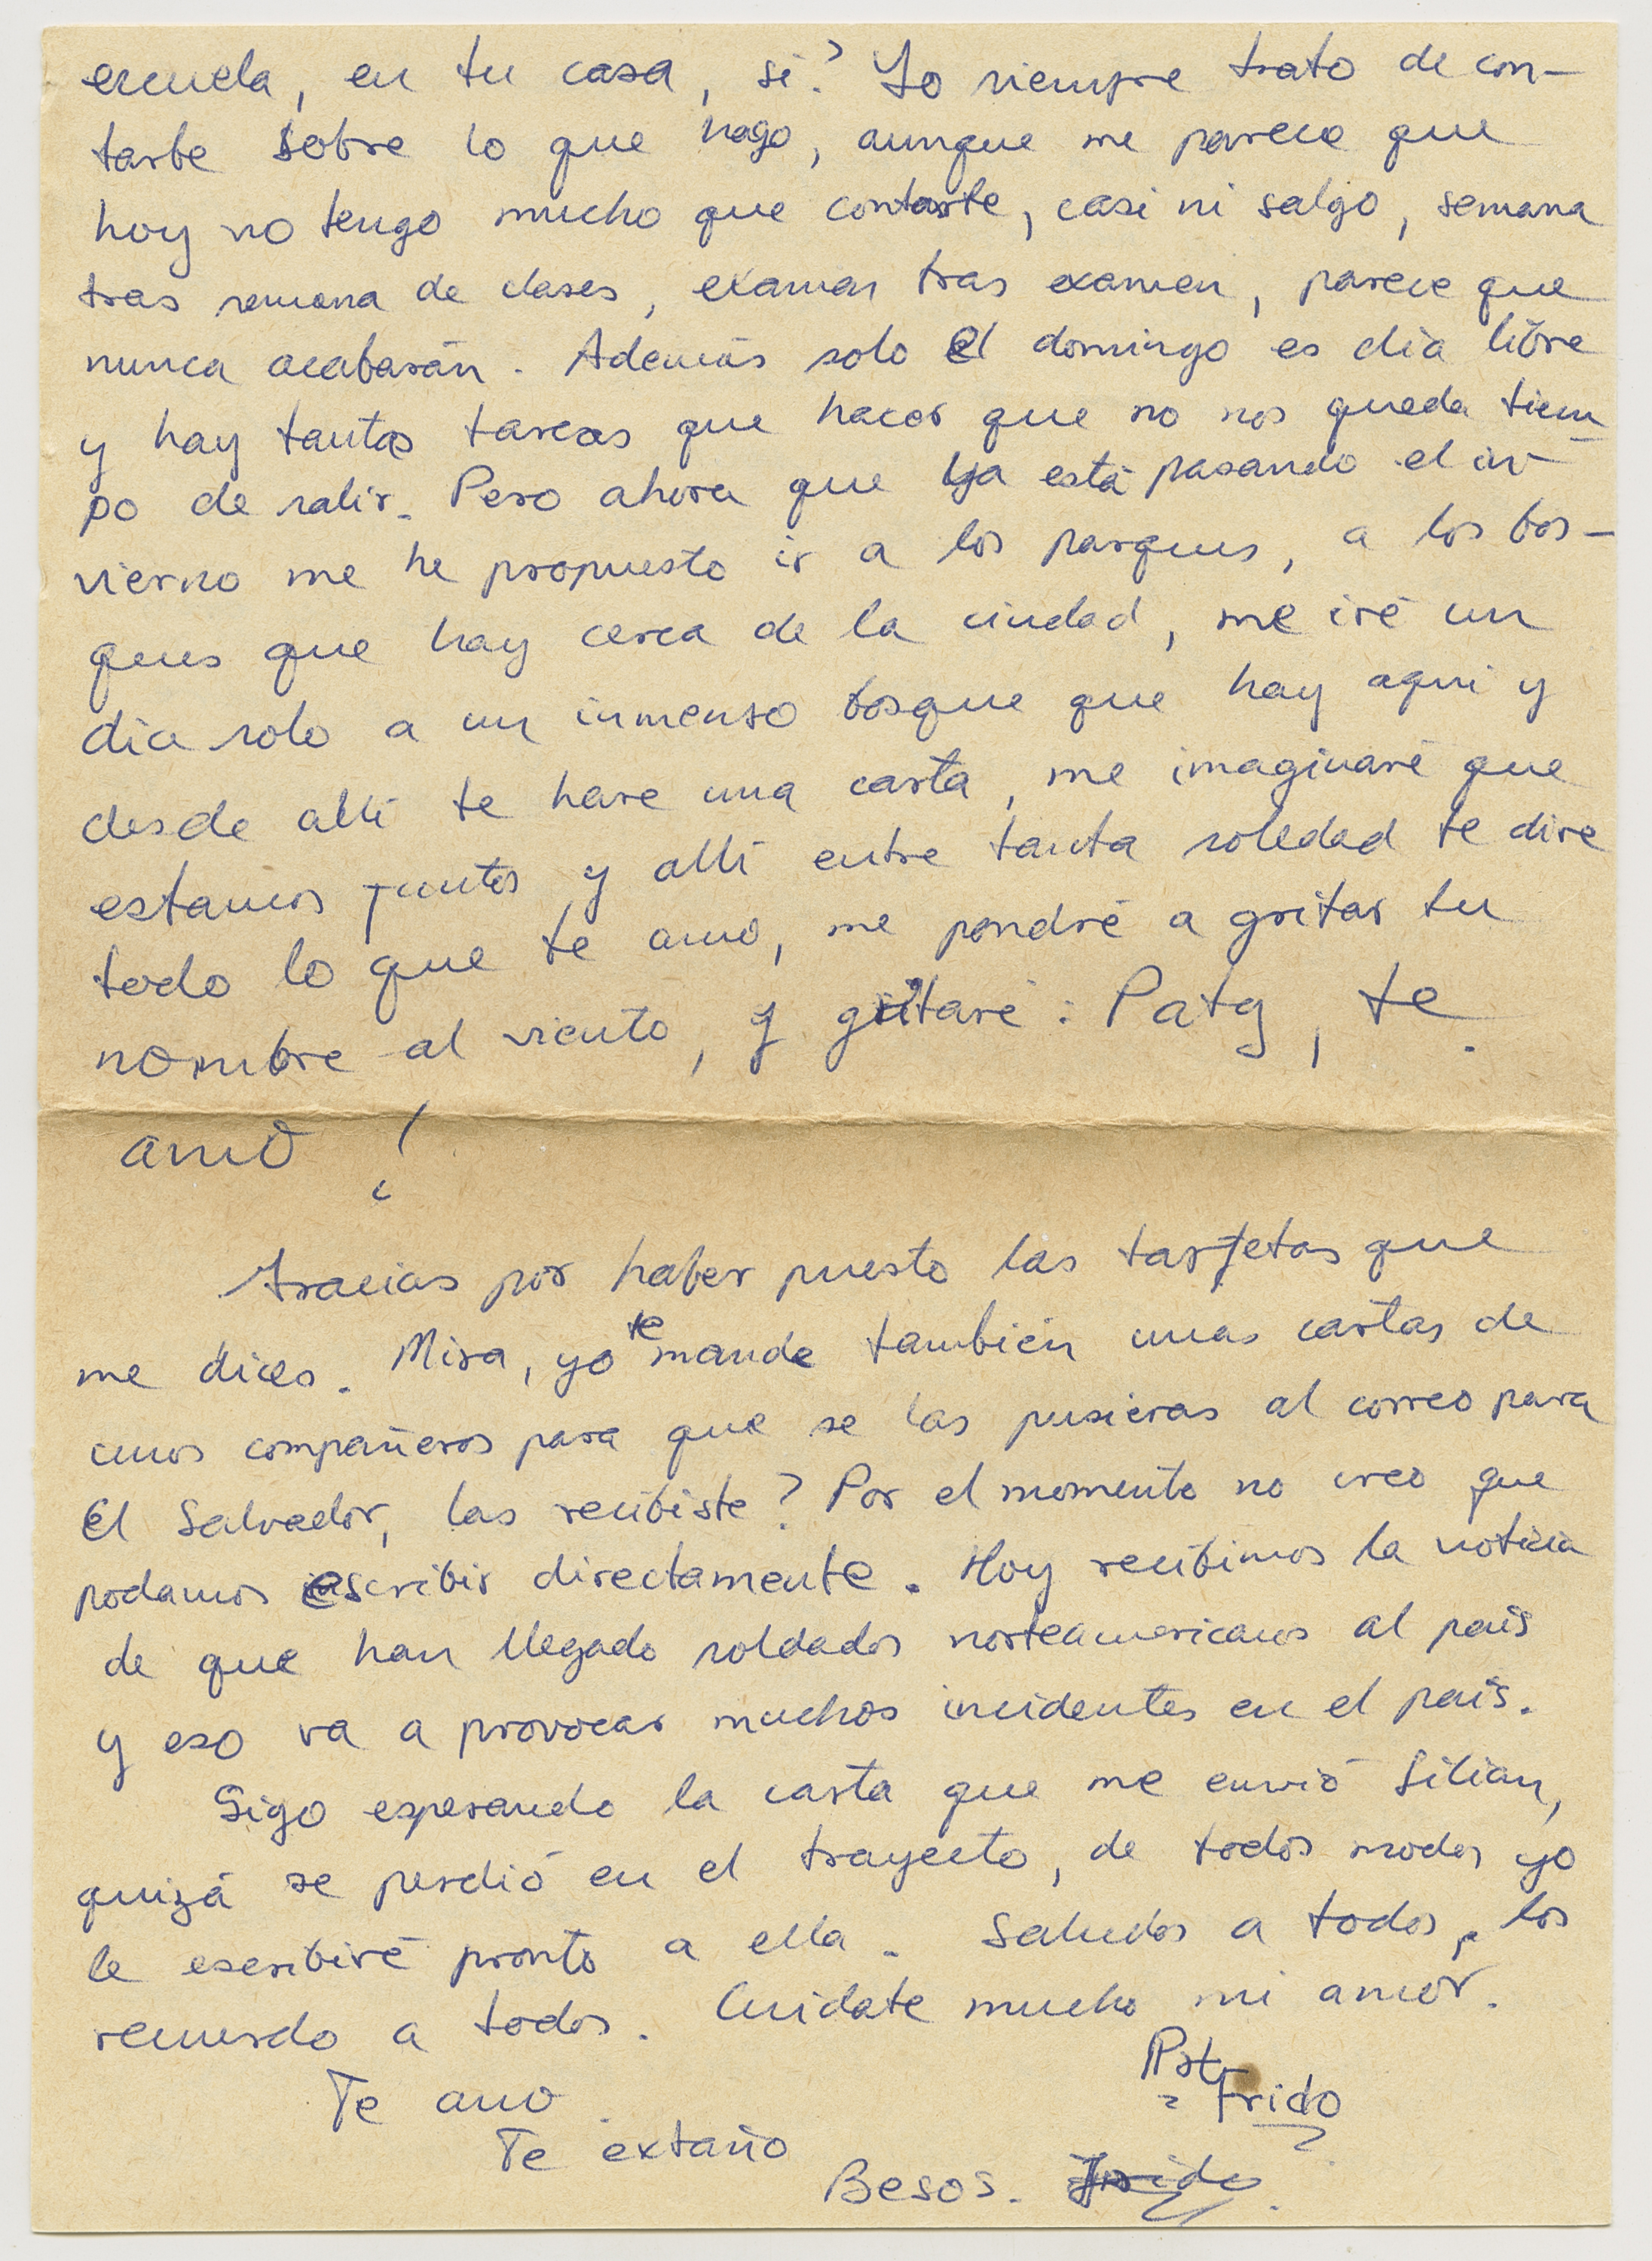 escuela, en tu casa, si? Yo siempre trato de con-
tarte sobre lo que hago, aunque me parece que
hoy no tengo mucho que contarte, casi ni salgo, semana
tras semana de clases, examen tras examen, parece que
nunca acabarán. Además solo el domingo es día libre
y hay tantas tareas que hacer que no nos queda tiem
po de salir. Pero ahora que ya está pasando el in-
vierno me he propuesto ir a los parques, a los bos-
ques que hay cerca de la ciudad, me iré un
día solo a un inmenso bosque que hay aqui y
desde allí te hare una carta, me imaginaré que
estamos juntos y allí entre tanta soledad te dire
todo lo que te amo, me pondré a gritar tu
nombre al viento, y gritaré: Paty, te
amo!
Gracias por haber puesto las tarjetas que
me dices. Mira, yo te mande también unas cartas de
unos compañeros para que se las pusieras al correo para
El Salvador, las recibiste? Por el momento no creo que
podamos escribir directamente. Hoy recibimos la noticia
de que han llegado soldados norteamericanos al país
y eso va a provocar muchos incidentes en el país.
Sigo esperando la carta que me envió Lilian,
quizá se perdió en el trayecto, de todos modos yo
le escribiré pronto a ella. Saludos a todos, los
recuerdo a todos. Cuidate mucho mi amor.
Te amo.
Frido
Te extaño
Besos. Frido.